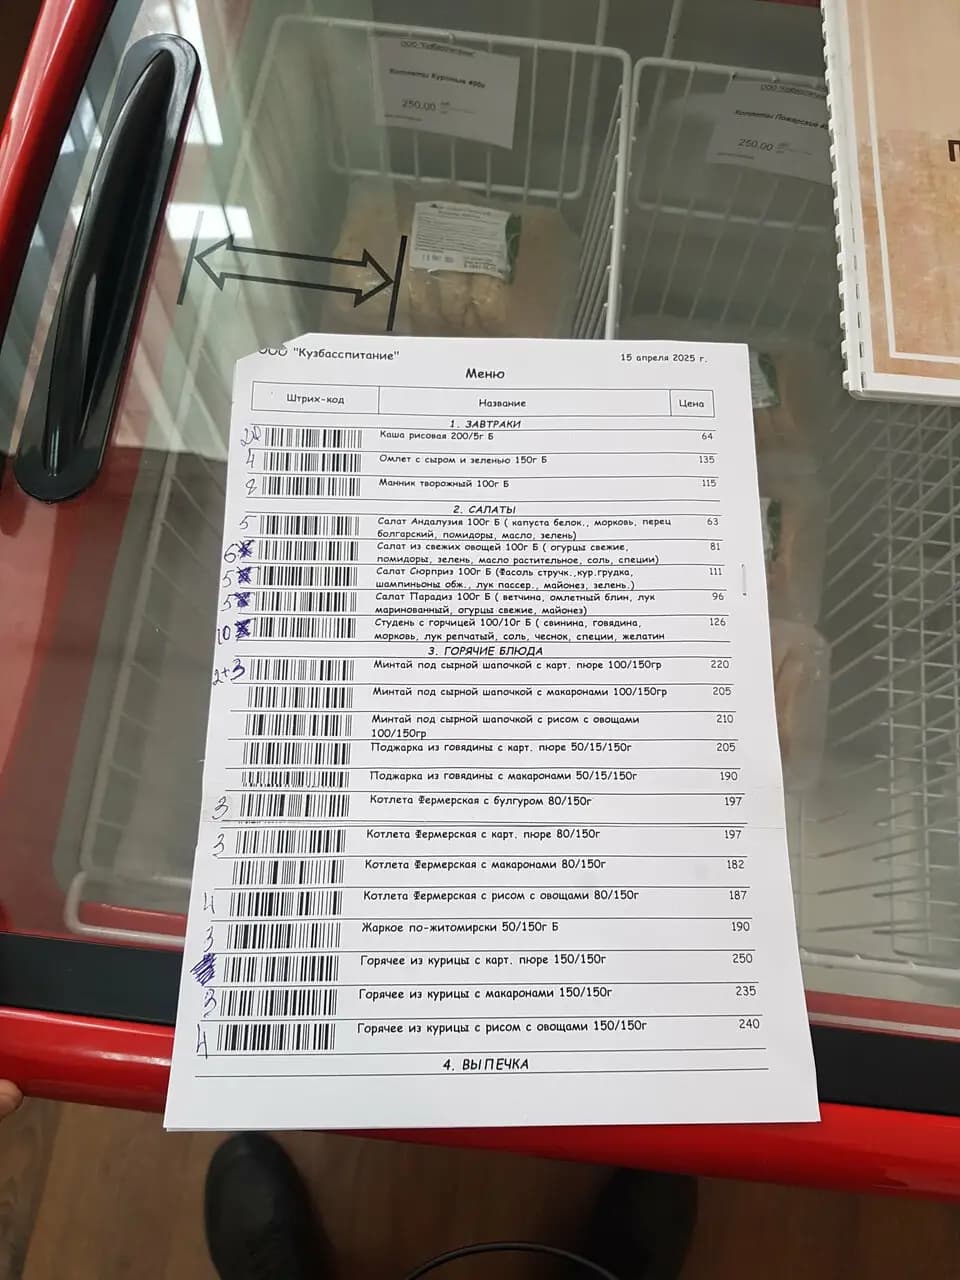 ООО "Кузбасспитание"
Котлеты Куриные 400г
250,00
ООО "Кузбасспитание"
Котлеты Пожарские
250,00
П
ООО "Кузбасспитание" 15 апреля 2025 г.
Меню
Штрих-код Название Цена
1. ЗАВТРАКИ
20 Каша рисовая 200/5г Б 64
4 Омлет с сыром и зеленью 150г Б 135
8 Манник творожный 100г Б 115
2. САЛАТЫ
5 Салат Андалузия 100г Б ( капуста белок., морковь, перец 63
болгарский, помидоры, масло, зелень)
6 Салат из свежих овощей 100г Б ( огурцы свежие, 81
помидоры, зелень, масло растительное, соль, специи)
5 Салат Сюрприз 100г Б (Фасоль стручк.,кур.грудка, 111
шампиньоны обж., лук пассер., майонез, зелень.)
5 Салат Парадиз 100г Б ( ветчина, омлетный блин, лук 96
маринованный, огурцы свежие, майонез)
10 Студень с горчицей 100/10г Б ( свинина, говядина, 126
морковь, лук репчатый, соль, чеснок, специи, желатин
3. ГОРЯЧИЕ БЛЮДА
2+3 Минтай под сырной шапочкой с карт. пюре 100/150гр 220
Минтай под сырной шапочкой с макаронами 100/150гр 205
Минтай под сырной шапочкой с рисом с овощами 210
100/150гр
Поджарка из говядины с карт. пюре 50/15/150г 205
Поджарка из говядины с макаронами 50/15/150г 190
3 Котлета Фермерская с булгуром 80/150г 197
3 Котлета Фермерская с карт. пюре 80/150г 197
Котлета Фермерская с макаронами 80/150г 182
4 Котлета Фермерская с рисом с овощами 80/150г 187
3 Жаркое по-житомирски 50/150г Б 190
Горячее из курицы с карт. пюре 150/150г 250
3 Горячее из курицы с макаронами 150/150г 235
4 Горячее из курицы с рисом с овощами 150/150г 240
4. ВЫПЕЧКА